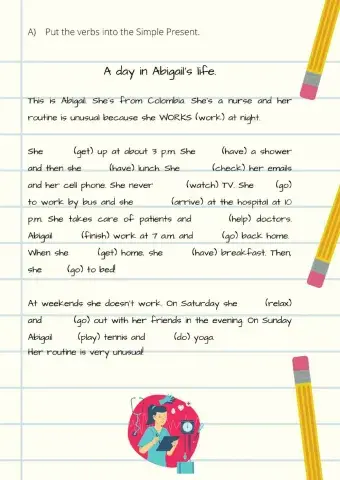 A) Put the verbs into the Simple Present.
A day in Abigail's life.
This is Abigail. She's from Colombia. She's a nurse and her
routine is unusual because she WORKS (work) at night.
She (get) up at about 3 p.m. She (have) a shower
and then she (have) lunch. She (check) her emails
and her cell phone. She never (watch) TV. She (go)
to work by bus and she (arrive) at the hospital at 10
p.m. She takes care of patients and (help) doctors.
Abigail (finish) work at 7 a.m. and (go) back home.
When she (get) home, she (have) breakfast. Then,
she (go) to bed!
At weekends she doesn't work. On Saturday she (relax)
and (go) out with her friends in the evening. On Sunday
Abigail (play) tennis and (do) yoga.
Her routine is very unusual!